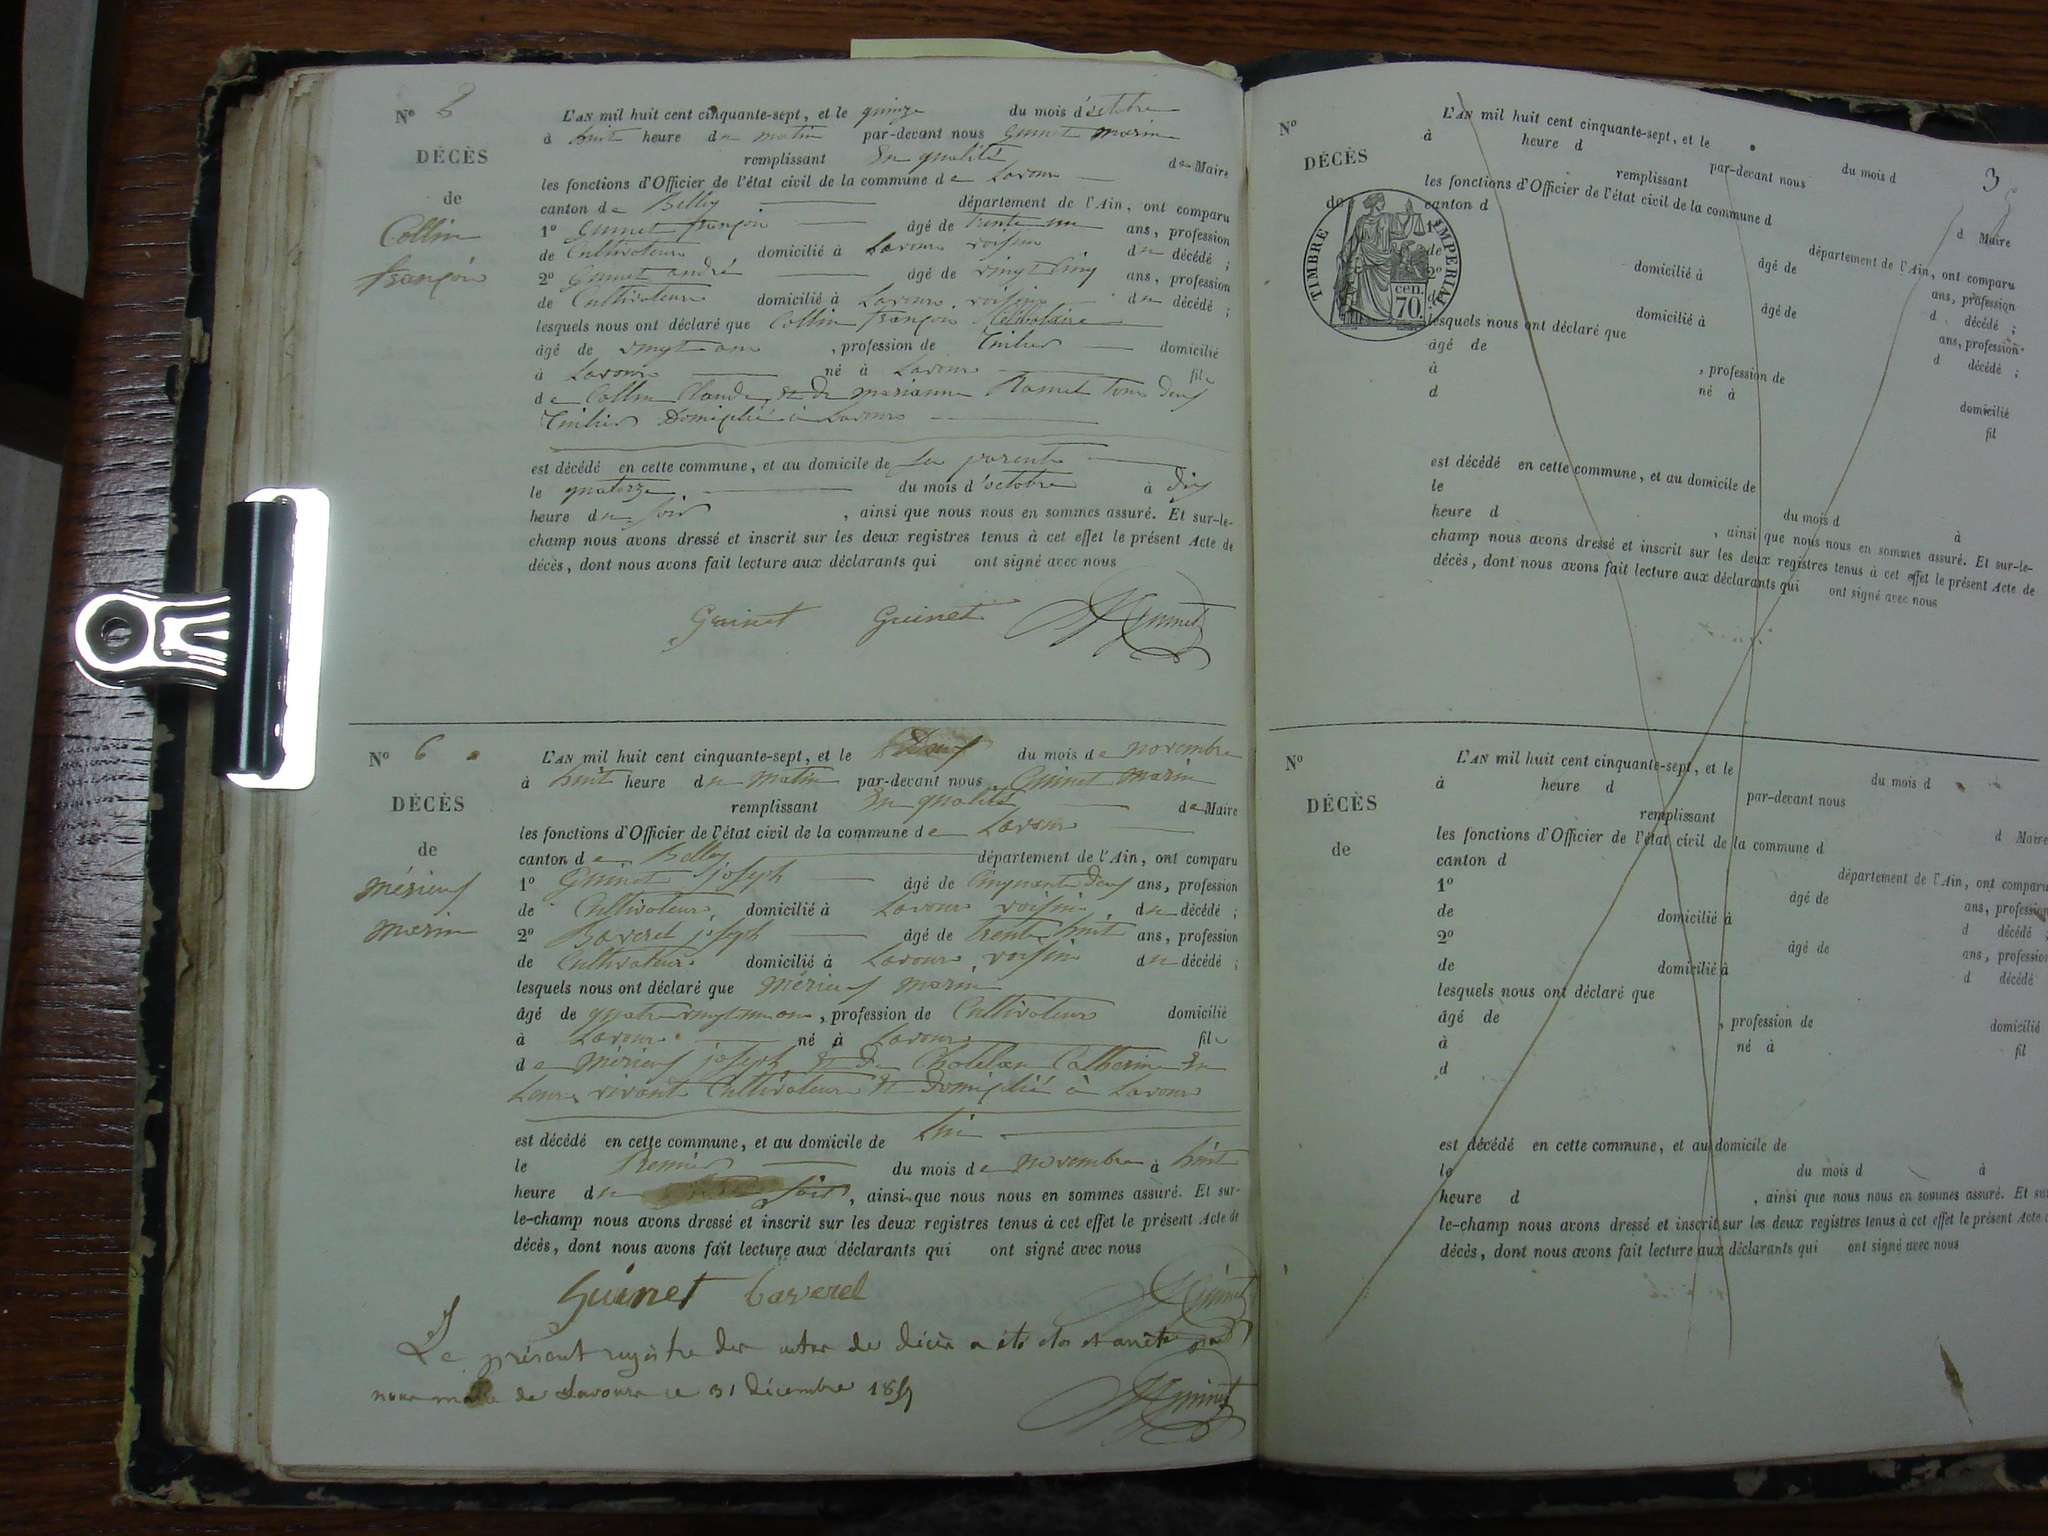 N° 5
DÉCÈS
de
Collin
françois
L'AN mil huit cent cinquante-sept, et le quinze du mois d'octobre
à huit heure du matin par-devant nous Guinet marin
remplissant en qualité de Maire
les fonctions d'Officier de l'état civil de la commune de Lavour
canton de Belley département de l'Ain, ont comparu
1° Guinet françois âgé de trente un ans, profession
de Cultivateur domicilié à Lavour voisin du décédé ;
2° Guinet andré âgé de vingt cinq ans, profession
de Cultivateur domicilié à Lavour voisin du décédé ;
lesquels nous ont déclaré que Collin françois Célibataire
âgé de vingt ans, profession de domicilié
à Lavour né à Lavour fils
de Collin Claude et de marianne Ramel tous deux
domicilié à Lavour
est décédé en cette commune, et au domicile de ses parents
le quatorze du mois d'octobre à dix
heure du soir, ainsi que nous nous en sommes assuré. Et sur-le-
champ nous avons dressé et inscrit sur les deux registres tenus à cet effet le présent Acte de
décès, dont nous avons fait lecture aux déclarants qui ont signé avec nous
Guinet Guinet Guinet
N° 6
DÉCÈS
de
mérieux
marin
L'AN mil huit cent cinquante-sept, et le du mois de novembre
à huit heure du matin par-devant nous Guinet marin
remplissant en qualité de Maire
les fonctions d'Officier de l'état civil de la commune de Lavour
canton de Belley département de l'Ain, ont comparu
1° Guinet joseph âgé de Cinquante deux ans, profession
de Cultivateur domicilié à Lavour voisin du décédé ;
2° Baverel joseph âgé de trente huit ans, profession
de Cultivateur domicilié à Lavour voisin du décédé ;
lesquels nous ont déclaré que mérieux marin
âgé de quatre vingt un ans, profession de Cultivateur domicilié
à Lavour né à Lavour fils
de mérieux joseph et de Catherine en
Leurs vivant Cultivateur et domicilié à Lavour
est décédé en cette commune, et au domicile de lui
le Premier du mois de novembre à huit
heure du soir, ainsi que nous nous en sommes assuré. Et sur-
le-champ nous avons dressé et inscrit sur les deux registres tenus à cet effet le présent Acte de
décès, dont nous avons fait lecture aux déclarants qui ont signé avec nous
Guinet baverel Guinet
Le présent registre des actes de décès a été clos et arrêté par
nous maire de Lavours ce 31 Décembre 1857
Guinet
3
N°
DÉCÈS
de
TIMBRE IMPÉRIAL
cen. 70.
L'AN mil huit cent cinquante-sept, et le du mois d
à heure d par-devant nous
remplissant d Maire
les fonctions d'Officier de l'état civil de la commune d
canton d département de l'Ain, ont comparu
1° âgé de ans, profession
de domicilié à d décédé ;
2° âgé de ans, profession
d domicilié à d décédé ;
lesquels nous ont déclaré que
âgé de , profession de domicilié
à né à fil
d
est décédé en cette commune, et au domicile de
le du mois d à
heure d , ainsi que nous nous en sommes assuré. Et sur-le-
champ nous avons dressé et inscrit sur les deux registres tenus à cet effet le présent Acte de
décès, dont nous avons fait lecture aux déclarants qui ont signé avec nous
N°
DÉCÈS
de
L'AN mil huit cent cinquante-sept, et le du mois d
à heure d par-devant nous
remplissant d Maire
les fonctions d'Officier de l'état civil de la commune d
canton d département de l'Ain, ont comparu
1° âgé de ans, profession
de domicilié à d décédé ;
2° âgé de ans, profession
de domicilié à d décédé
lesquels nous ont déclaré que
âgé de , profession de domicilié
à né à fil
d
est décédé en cette commune, et au domicile de
le du mois d à
heure d , ainsi que nous nous en sommes assuré. Et sur
le-champ nous avons dressé et inscrit sur les deux registres tenus à cet effet le présent Acte
décès, dont nous avons fait lecture aux déclarants qui ont signé avec nous